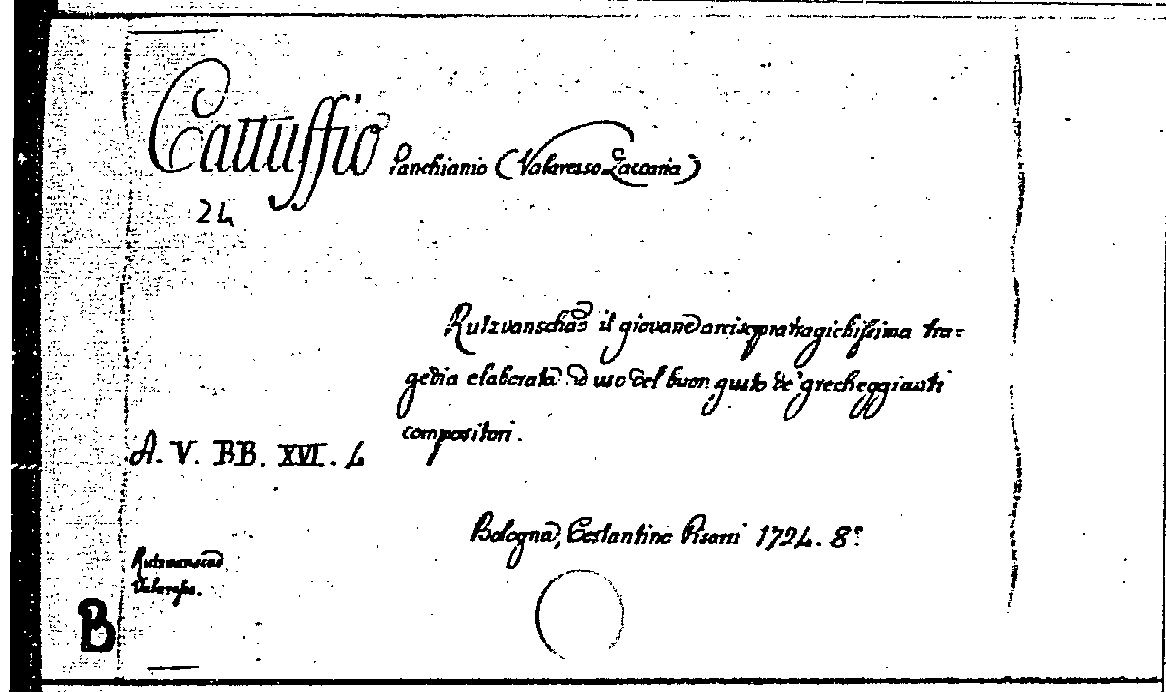 Cattuffio Panchianio (Valaresso Zaccaria)
24
Rutzvanschad il giovane arcisopratragichissima tra-
gedia elaborata ad uso del buon gusto de' grecheggianti
compositori.
A. V. BB. XVI. 4
Bologna, Costantino Pisarri 1724. 8°
Rutzvanscad
Valaresso.
B